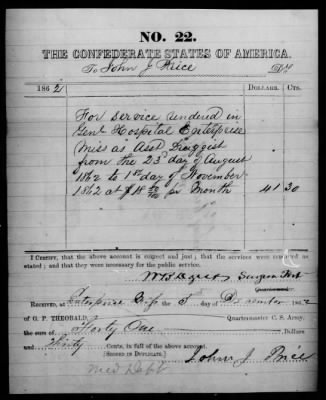 NO. 22.
THE CONFEDERATE STATES OF AMERICA,
To John J Price Dr.
1862 DOLLARS. CTS.
For service rendered in
Genl Hospital Enterprise
Miss as Asst Druggist
from the 23d day of August
1862 to 1st day of November
1862 at $18 per Month 41 30
I CERTIFY, that the above account is correct and just; that the services were rendered as
stated; and that they were necessary for the public service.
Surgeon
Quartermaster.
RECEIVED, at Enterprise Miss the 5 day of December 1862
of G. P. THEOBALD, Quartermaster C. S. Army,
the sum of Forty One Dollars
and Thirty Cents, in full of the above account.
[SIGNED IN DUPLICATE.]
John J. Price
Med Dept